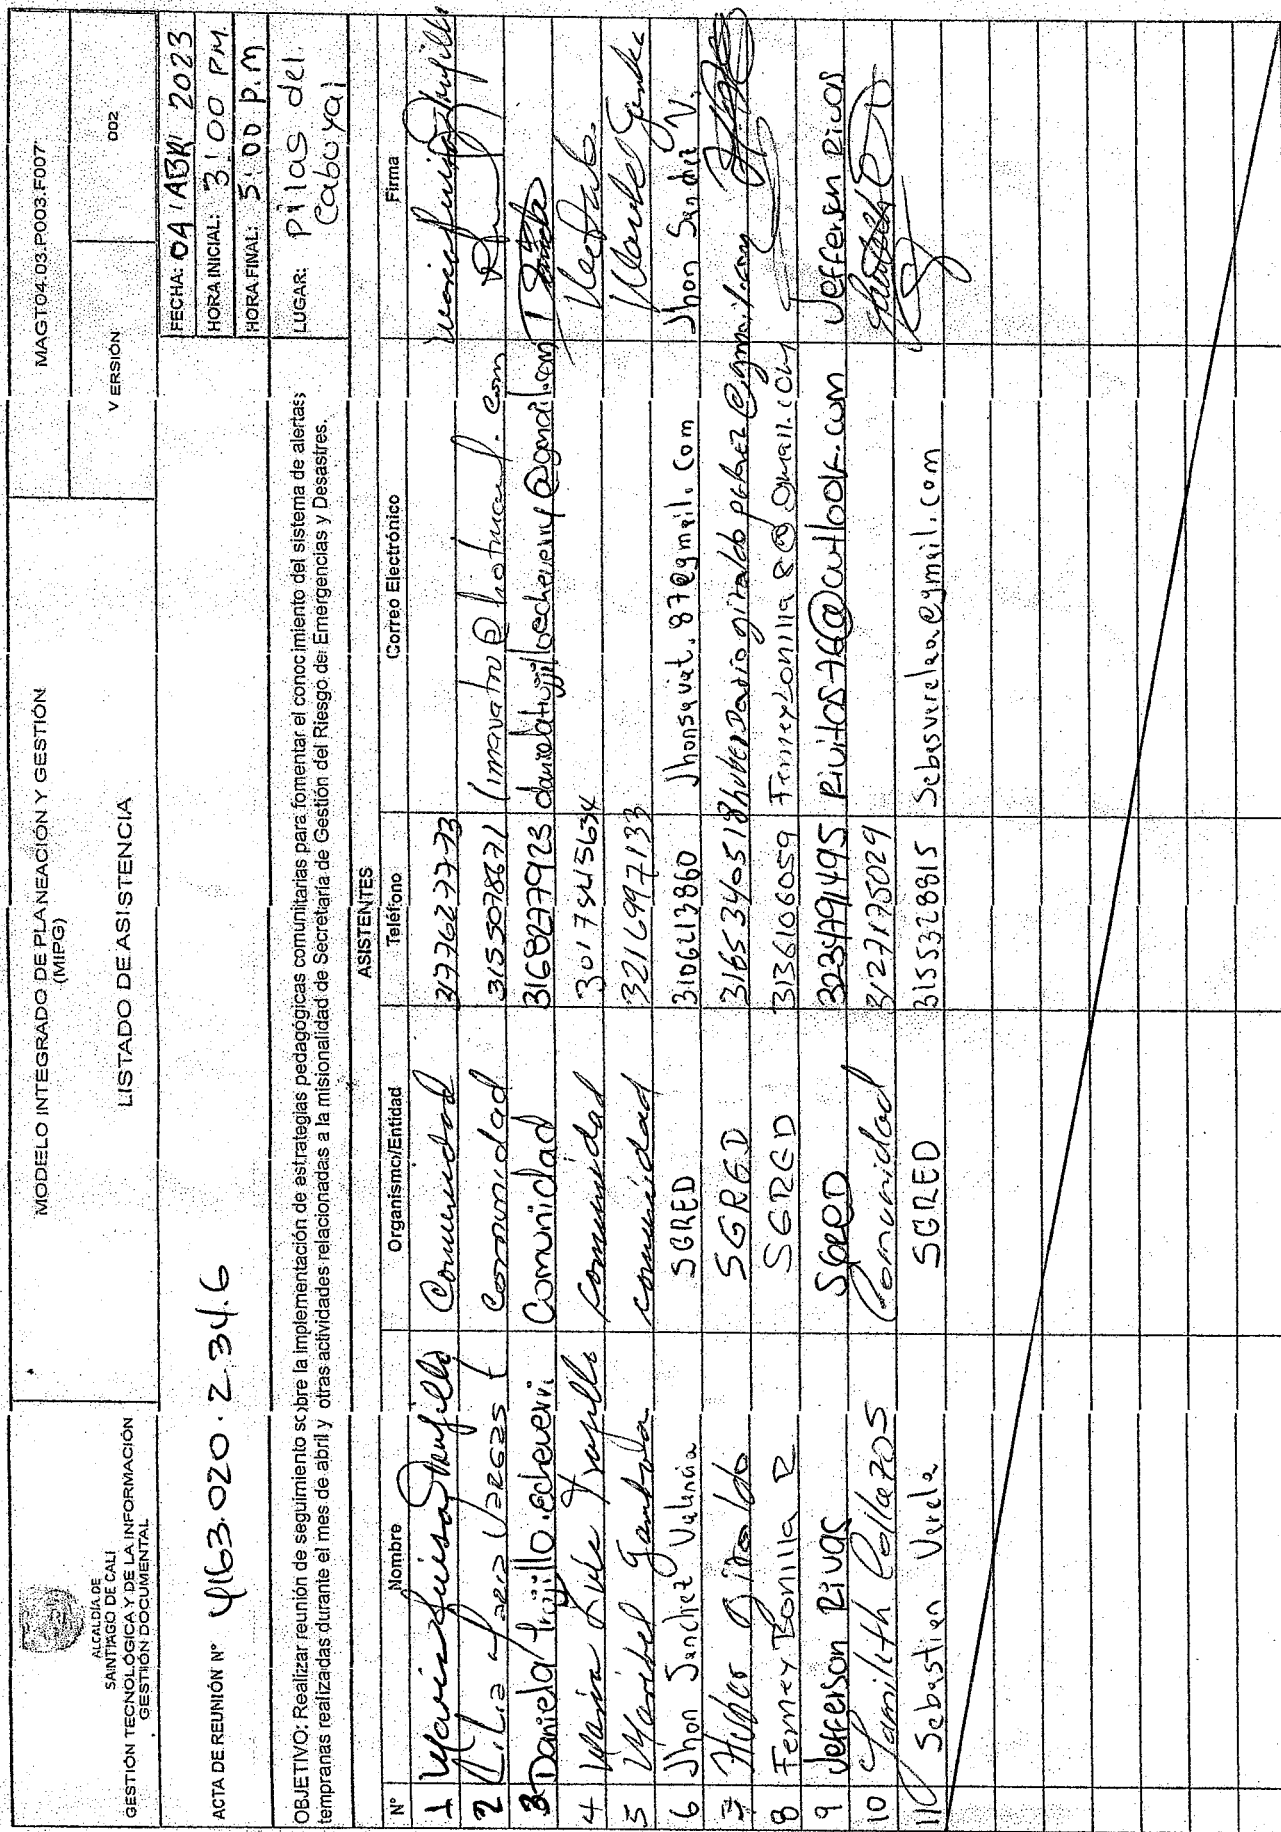 ALCALDÍA DE
SANTIAGO DE CALI
GESTIÓN TECNOLÓGICA Y DE LA INFORMACIÓN
GESTIÓN DOCUMENTAL
MODELO INTEGRADO DE PLANEACIÓN Y GESTIÓN
(MIPG)
LISTADO DE ASISTENCIA
MAGT04.03.P003.F007
VERSIÓN 002
ACTA DE REUNIÓN N° 4163.020.2.34.6
FECHA: 04 ABRI 2023
HORA INICIAL: 3:00 PM.
HORA FINAL: 5:00 P.M
LUGAR: Pilas del
Cabuyal
OBJETIVO: Realizar reunión de seguimiento sobre la implementación de estrategias pedagógicas comunitarias para fomentar el conocimiento del sistema de alertas
tempranas realizadas durante el mes de abril y otras actividades relacionadas a la misionalidad de Secretaría de Gestión del Riesgo de Emergencias y Desastres.
ASISTENTES
N° Nombre Organismo/Entidad Teléfono Correo Electrónico Firma
1 Maria Luisa Trujillo Comunidad 3177627773 Maria Luisa Trujillo
2 Lilia Vargas t Comunidad 3155078671
3 Daniela Trujillo Echeverri Comunidad 3168277923
4 Maria Trujillo Comunidad
5 Maribel Comunidad 3216997133
6 Jhon Sanchez Valencia SGRED 3106213860 Jhonsavat.87@gmail.com Jhon Sanchez V.
7 Huber Giraldo SGRED 3165340518
8 Ferney Bonilla R SGRED 3136106059 Ferneybonilla8@gmail.com
9 Jefferson Rivas SGRED 3234791495 Rivitos76@outlook.com Jefferson Rivas
10 Yamilith Collazos Comunidad 3127175029
11 Sebastian Varela SGRED 3155328815 Sebasvarelaa@gmail.com